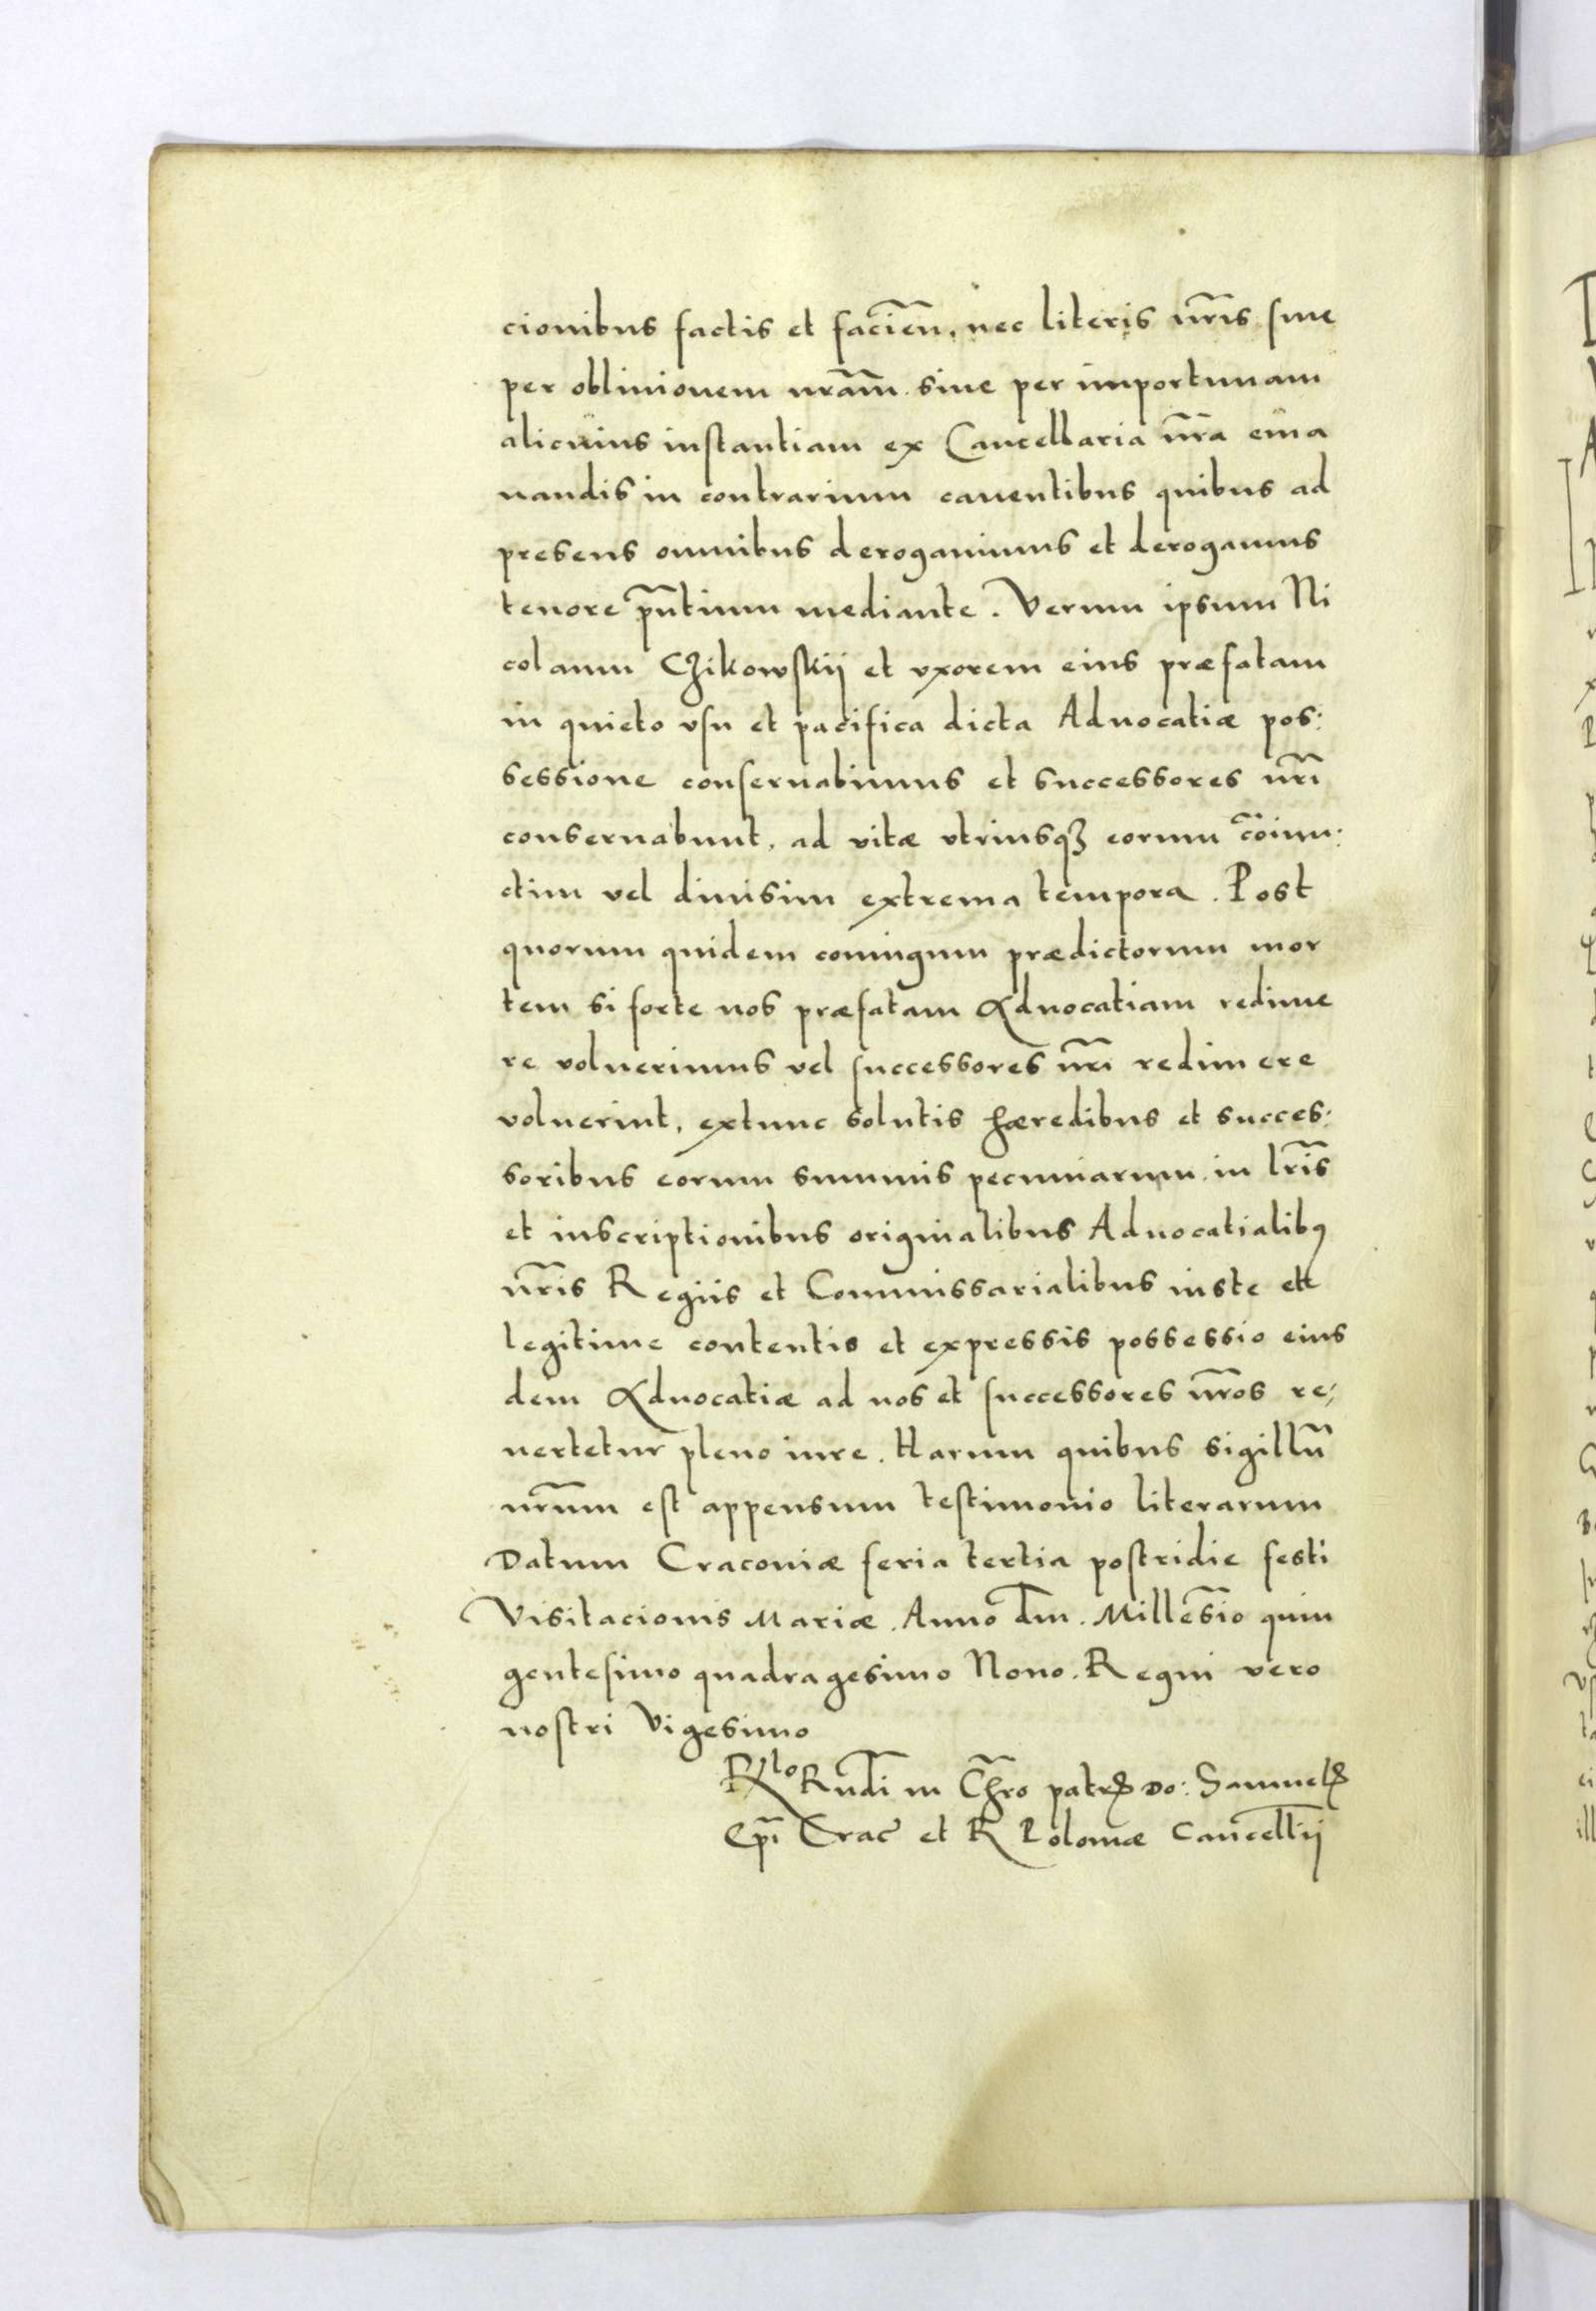 cionibus factis et facień, nec literis nr̃is siue
per obliuionem nrãm siue per importunam
alicuius instantiam ex Cancellaria nr̃a ema
nandis in contrarium cauentibus quibus ad
presens omnibus derogauimus et derogamus
tenore pñtium mediante. Verum ipsum Ni
colaum Czikowskij et vxorem eius præfatam
in quieto vsu et pacifica dicta Aduocatiæ pos:
sessione conseruabimus et successores nr̃i
conseruabunt, ad vitæ vtriusqꝫ eorum cõiun:
ctim vel diuisim extrema tempora. Post
quorum quidem coniugum prædictorum mor
tem si forte nos præfatam Aduocatiam redime
re voluerimus vel successores nr̃i redimere
voluerint, extunc solutis hæredibus et succes:
soribus eorum summis pecuniarum in lr̃is
et inscriptionibus originalibus Aduocatialibꝰ
nr̃is Regiis et Commissarialibus iuste et
legitime contentis et expressis possessio eius
dem Aduocatiæ ad nos et successores nr̃os re:
uertetur pleno iure. Harum quibus sigillũ
nr̃um est appensum testimonio literarum
Datum Cracouiæ feria tertia postridie festi
Visitacionis Mariæ. Anno Dñi. Millesĩo quin
gentesimo quadragesimo Nono. Regni vero
nostri Vigesimo
Rlo Rñdi in Chr̃o patrꝭ do: Samuelꝭ
Ep̃i Crac̃ et R Poloniæ Cancellrij